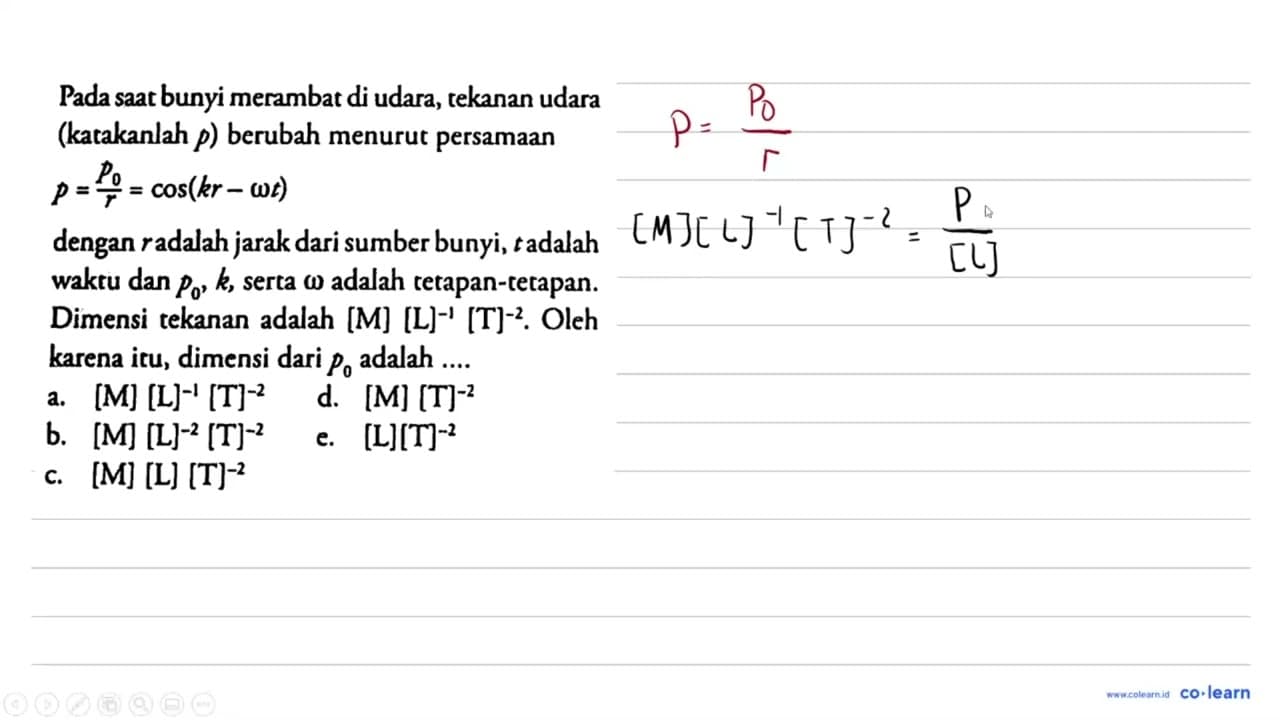 Pada saat bunyi merambat di udara, tekanan udara
(katakanlah p) berubah menurut persamaan
p = p₀/r = cos(kr – ωt)
dengan r adalah jarak dari sumber bunyi, t adalah
waktu dan p₀, k, serta ω adalah tetapan-tetapan.
Dimensi tekanan adalah [M] [L]⁻¹ [T]⁻². Oleh
karena itu, dimensi dari p₀ adalah ....
a. [M] [L]⁻¹ [T]⁻² d. [M] [T]⁻²
b. [M] [L]⁻² [T]⁻² e. [L][T]⁻²
c. [M] [L] [T]⁻²
P = P₀/r
[M][L]⁻¹[T]⁻² = P/[L]
www.colearn.id co·learn